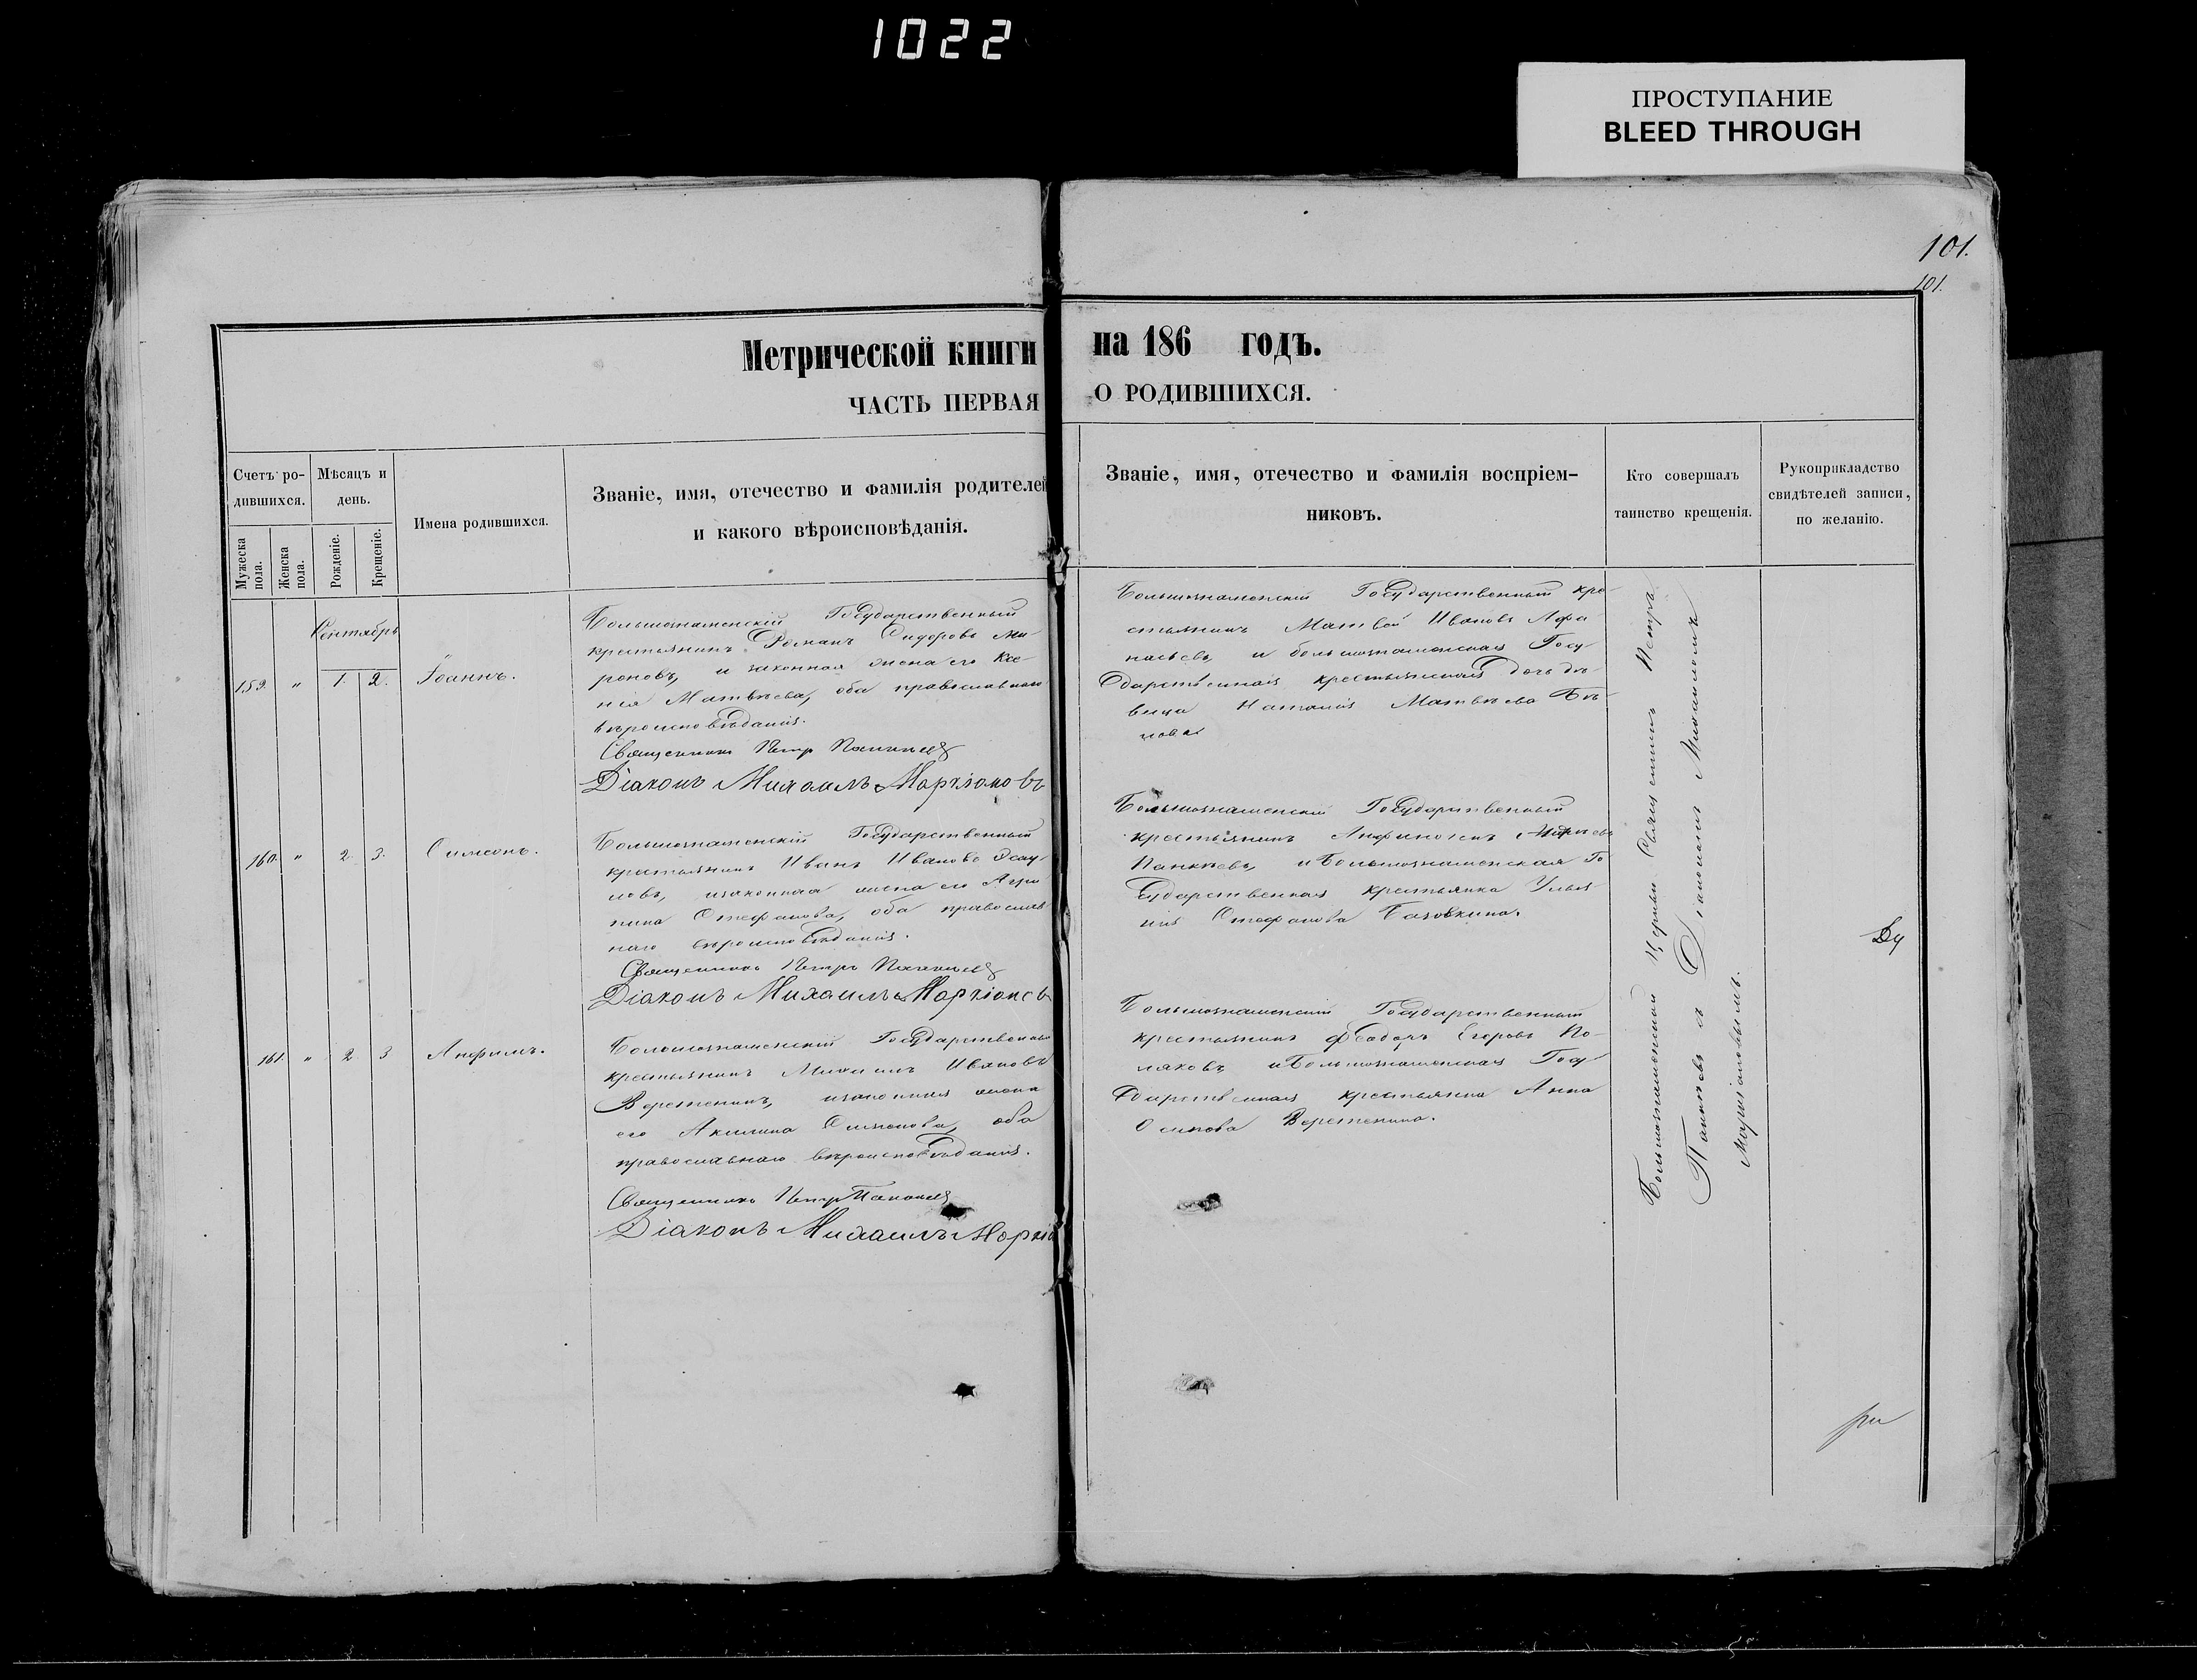 1022
ПРОСТУПАНИЕ
BLEED THROUGH
101.
101.
Метрической книги на 186 годъ.
ЧАСТЬ ПЕРВАЯ О РОДИВШИХСЯ.
Счетъ ро-
дившихся.
Мужеска
пола.
Женска
пола.
Мѣсяцъ и
день.
Рожденіе.
Крещеніе.
Имена родившихся.
Званіе, имя, отечество и фамилія родителей
и какого вѣроисповѣданія.
Званіе, имя, отечество и фамилія воспріем-
никовъ.
Кто совершалъ
таинство крещенія.
Рукоприкладство
свидѣтелей записи,
по желанію.
Сентябрь
159. " 1. 2. Іоаннъ.
Большознаменскій Государственный
крестьянинъ Романъ Сидоровъ Ми-
роновъ, и законная жена его Ксе-
нія Матвѣева, оба православнаго
вѣроисповѣданія.
Священникъ Петр
Діаконъ Михаилъ Маркіановъ
Большознаменскій Государственный кре-
стьянинъ Матвей Ивановъ Афа
насьевъ, и большознаменская Госу-
дарственная крестьянская дочь дѣ-
вица Наталія Матвѣева Бѣ-
лова
160. " 2. 3. Симеонъ.
Большознаменскій Государственный
крестьянинъ Иванъ Ивановъ Эсау-
ловъ, и законная жена его Агри
пина Стефанова, оба православ-
наго вѣроисповѣданія.
Священникъ Петръ
Діаконъ Михаилъ Маркіановъ
Большознаменскій Государственный
крестьянинъ
Панкѣевъ, и Большознаменская Го
сударственная крестьянка Улья
нія Стефанова
161. " 2 3 Анфимъ.
Большознаменскій Государственный
крестьянинъ Михаилъ Ивановъ
Веретенинъ, и законная жена
его Акилина Симонова, оба
православнаго вѣроисповѣданія.
Священникъ Петръ
Діаконъ Михаилъ Маркіа
Большознаменскій Государственный
крестьянинъ Феодоръ Егоровъ По-
ляковъ, и Большознаменская Госу-
дарственная крестьянка Анна
Осипова Веретенина.
Большознаменской Церкви Священникъ Петръ
Панкѣевъ съ Діакономъ Михаиломъ
Маркіановымъ.